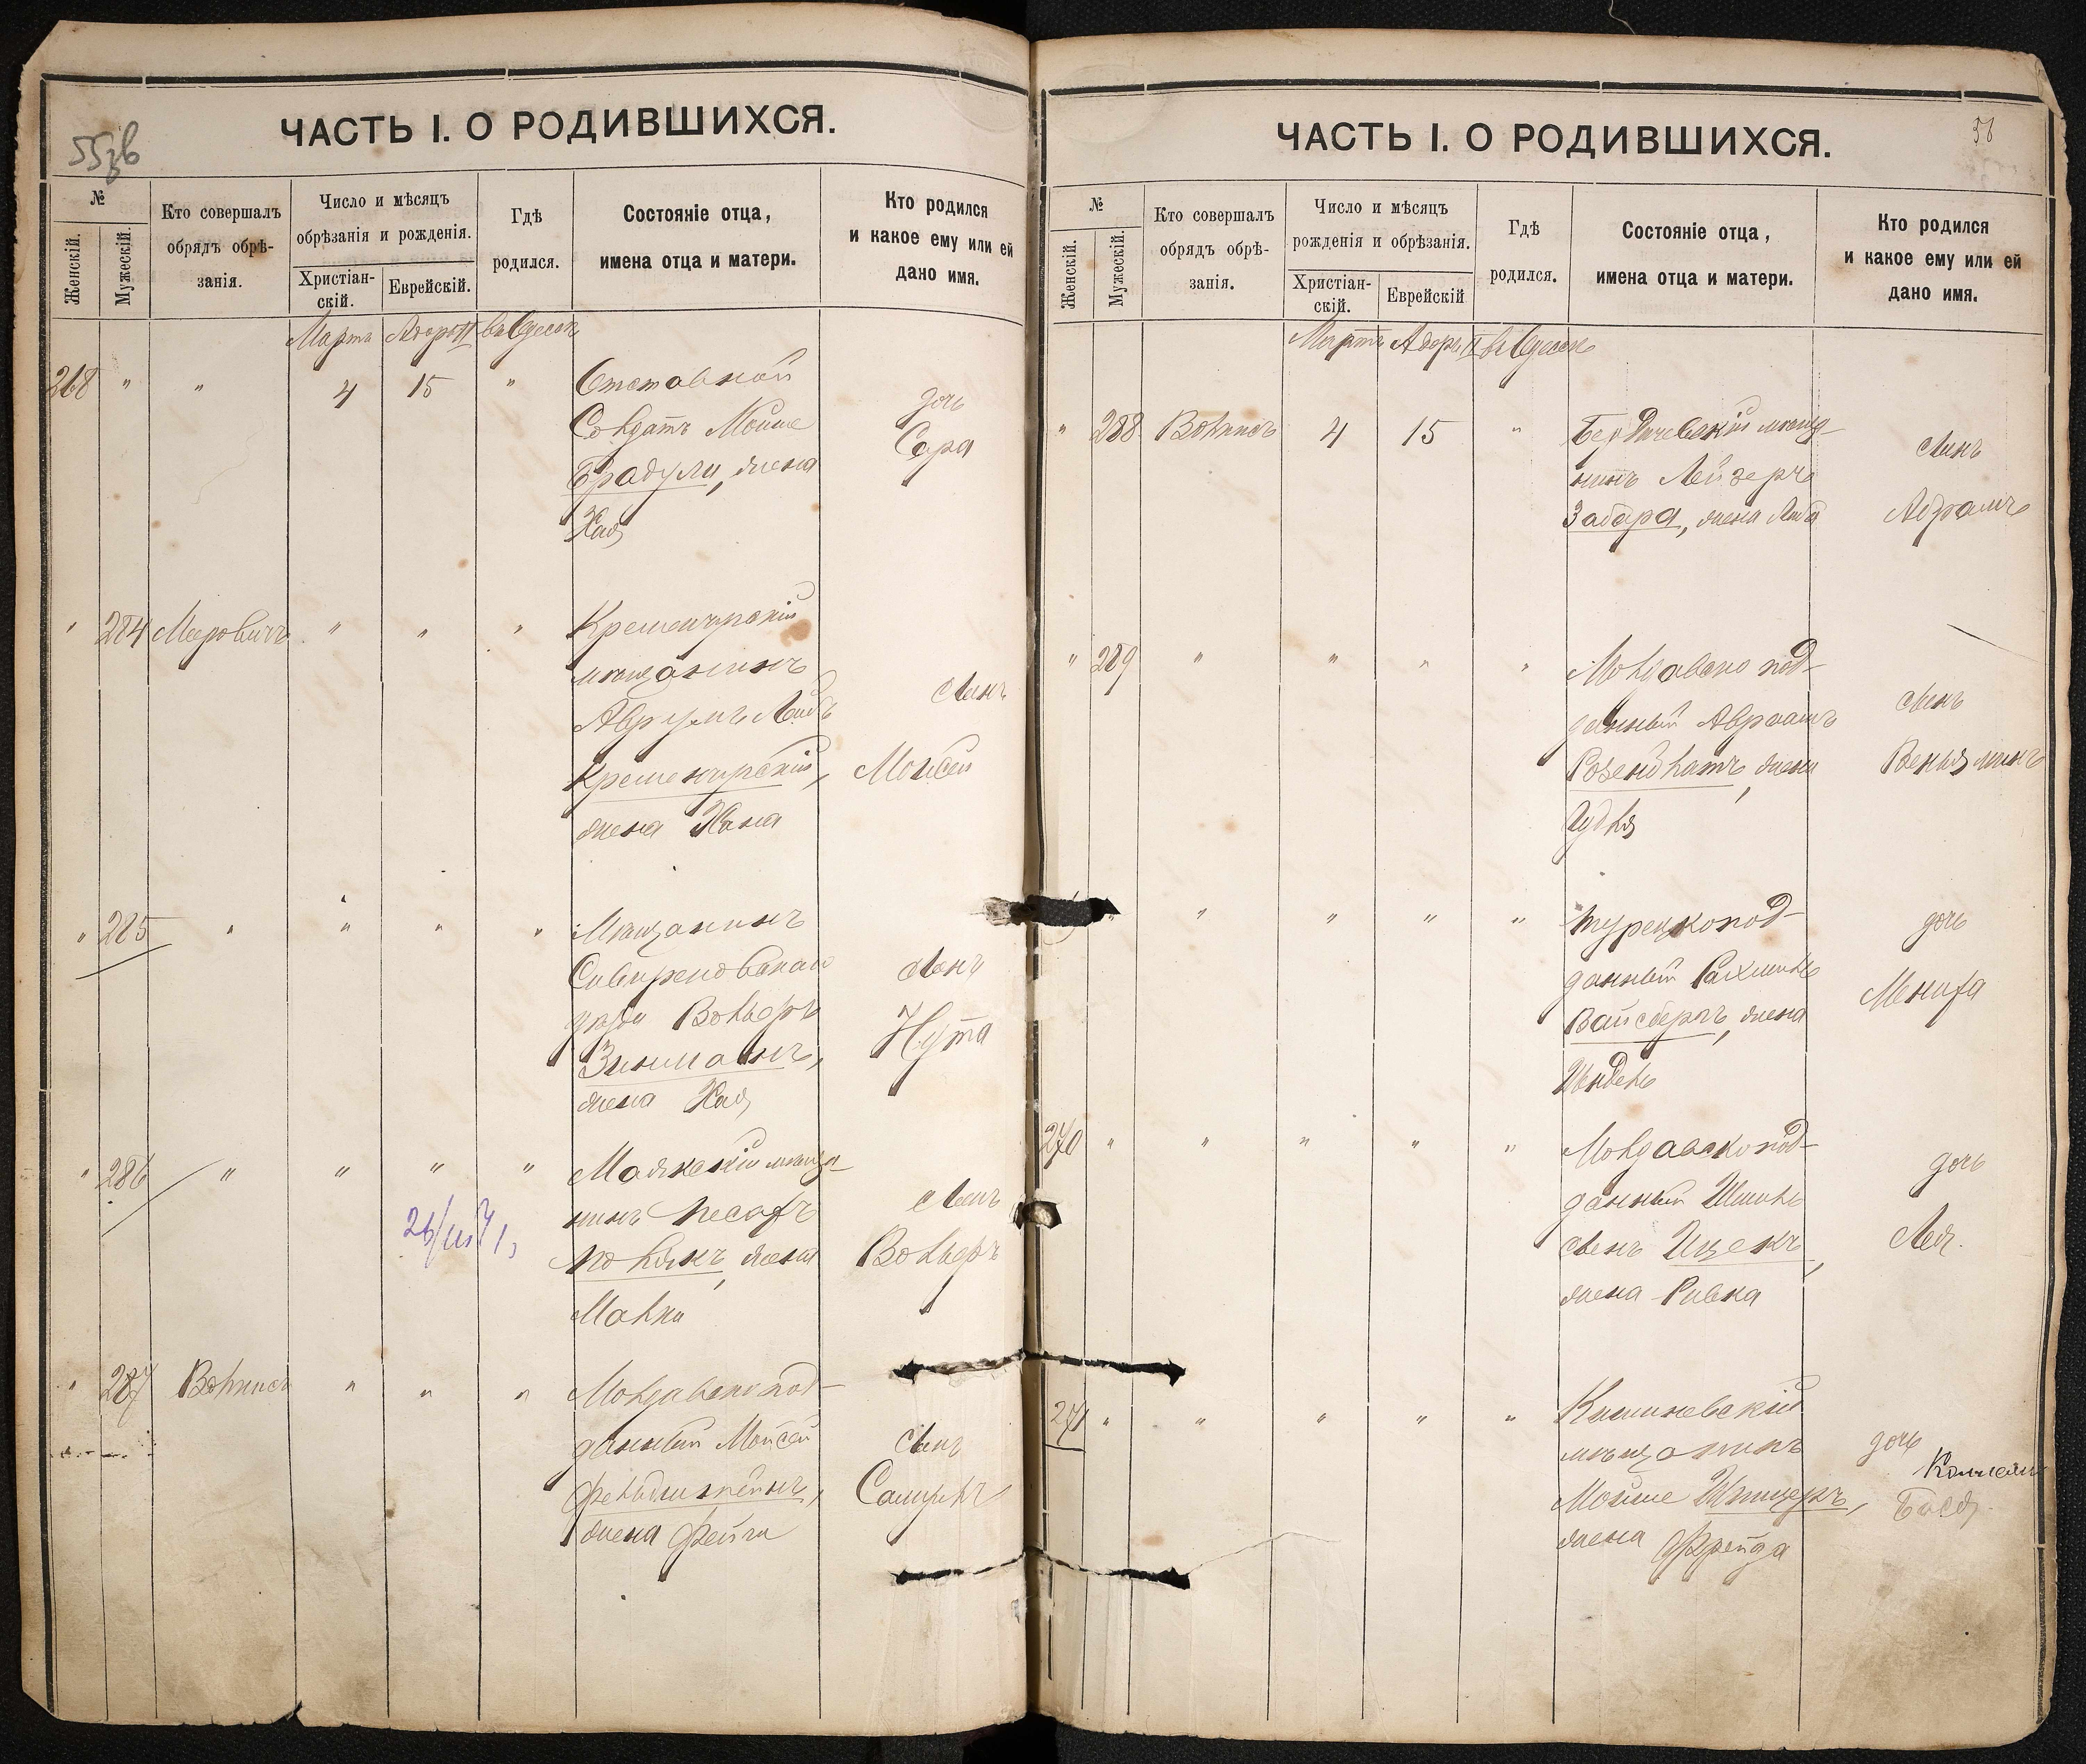 ЧАСТЬ I. О РОДИВШИХСЯ.
№
Женскій.
Мужескій.
Кто совершалъ
обрядъ обрѣ-
занія.
Число и мѣсяцъ
обрѣзанія и рожденія.
Христіан-
скій.
Еврейскій.
Гдѣ
родился.
Состояніе отца,
имена отца и матери.
Кто родился
и какое ему или ей
дано имя.
Марта Адоръ II въ Одессѣ
268 " " 4 15 " Отставной
Солдатъ Мойше
Брадули, жена
Хая
дочь
Сора
" 284 Мееровичъ " " " Кременчугскій
мѣщанинъ
Аврумъ Лейбъ
Кременчугскій,
жена Хана
сынъ
Мойсей
" 285 " " " " Мѣщанинъ
Вольфъ
Зинманъ,
жена Хая
сынъ
Нута
" 286 " " " " Маякскій мѣща-
нинъ Песахъ
Полякъ, жена
Малки
сынъ
Вольфъ
" 287 Вольписъ " " " Молдавскопод-
данный Мойсей
Фельдштейнъ,
жена Фейги
сынъ
Самуилъ
ЧАСТЬ I. О РОДИВШИХСЯ.
№
Женскій.
Мужескій.
Кто совершалъ
обрядъ обрѣ-
занія.
Число и мѣсяцъ
рожденія и обрѣзанія.
Христіан-
скій.
Еврейскій
Гдѣ
родился.
Состояніе отца,
имена отца и матери.
Кто родился
и какое ему или ей
дано имя.
Мартъ Адоръ II въ Одессѣ
" 288 Вольписъ 4 15 " Бердичевскій мѣща-
нинъ Лейзеръ
Забара, жена Либа
сынъ
Абрамъ
" 289 " " " " Молдавско под-
данный Авраамъ
Розенблатъ, жена
Гудля
сынъ
Веньяминъ
" " " " " Турецкопод-
данный Рахмиль
Вайсбергъ, жена
Шындель
дочь
Мениха
270 " " " " " Молдавскопод-
данный Шмиль
сынъ Ицекъ,
жена Ривка
дочь
Лея.
271 " " " " " Кишиневскій
мѣщанинъ
Мойше Шницеръ,
жена Фрейда
дочь
Бася.